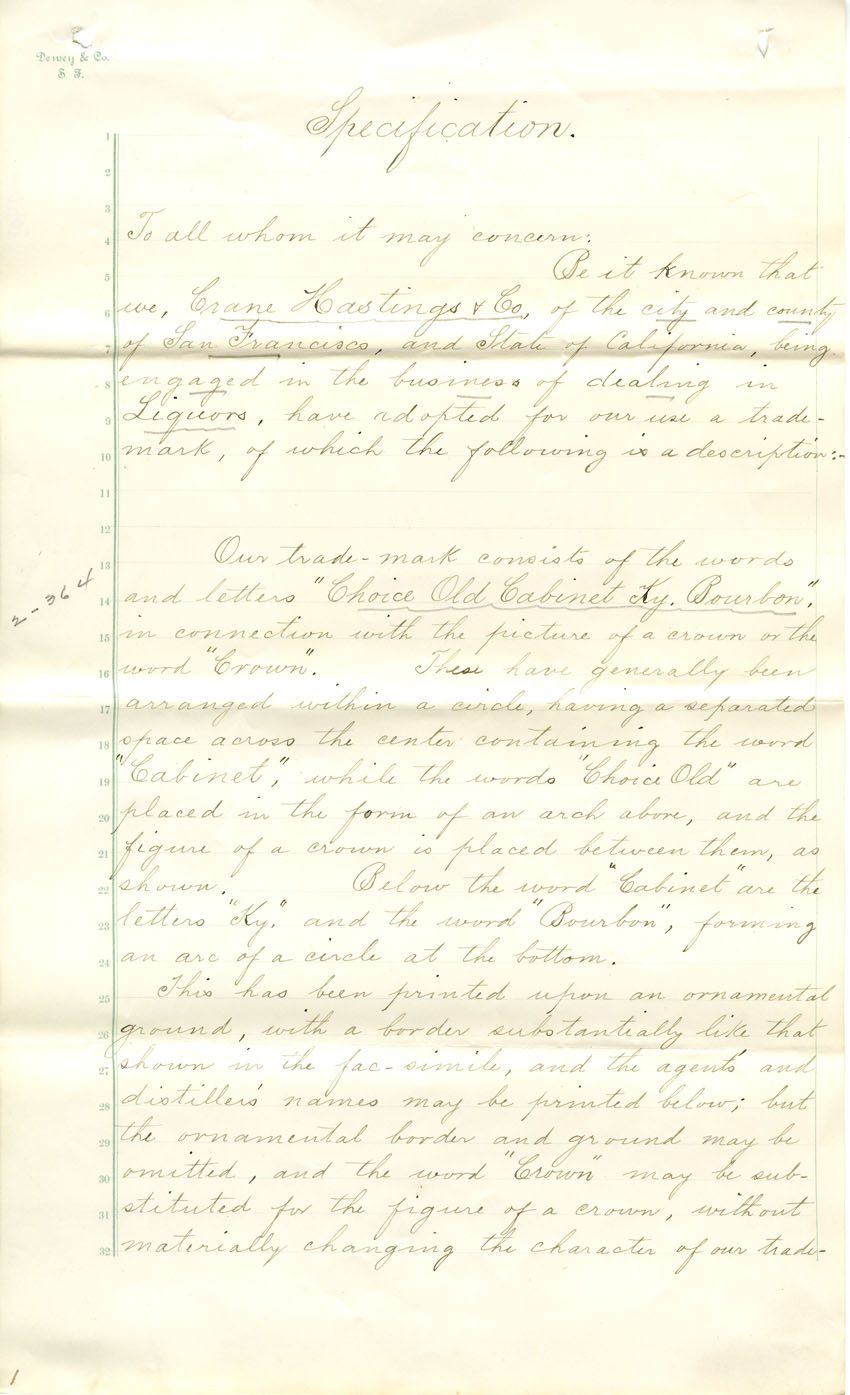 Dewey & Co.
S. F.
Specification.
1
2
3
4 To all whom it may concern:
5 Be it known that
6 we, Crane Hastings & Co, of the city and county
7 of San Francisco, and State of California, being
8 engaged in the business of dealing in
9 Liquors, have adopted for our use a trade-
10 mark, of which the following is a description:-
11
12
13 Our trade-mark consists of the words
14 and letters "Choice Old Cabinet Ky. Bourbon",
2-364
15 in connection with the picture of a crown or the
16 word "Crown". These have generally been
17 arranged within a circle, having a separated
18 space across the center containing the word
19 "Cabinet", while the words "Choice Old" are
20 placed in the form of an arch above, and the
21 figure of a crown is placed between them, as
22 shown. Below the word "Cabinet" are the
23 letters "Ky." and the word "Bourbon", forming
24 an arc of a circle at the bottom.
25 This has been printed upon an ornamental
26 ground, with a border substantially like that
27 shown in the fac-simile, and the agents' and
28 distillers' names may be printed below; but
29 the ornamental border and ground may be
30 omitted, and the word "Crown" may be sub-
31 stituted for the figure of a crown, without
32 materially changing the character of our trade-
1